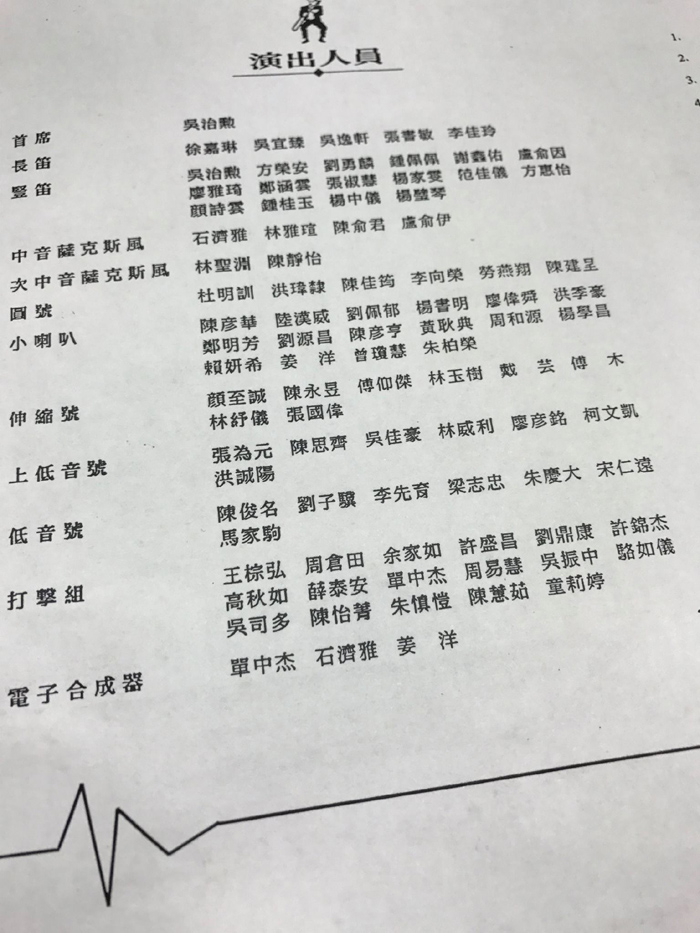 演出人員
首席 吳治勲
長笛 徐嘉琳 吳宜臻 吳逸軒 張書敏 李佳玲
豎笛 吳治勲 方榮安 劉勇麟 鍾佩佩 謝鑫佑 盧俞因
廖雅琦 鄭涵雲 張淑慧 楊家雯 范佳儀 方惠怡
顔詩雲 鍾桂玉 楊中儀 楊璧琴
中音薩克斯風 石濟雅 林雅瑄 陳俞君 盧俞伊
次中音薩克斯風 林聖淵 陳靜怡
圓號 杜明訓 洪瑋隸 陳佳筠 李向榮 勞燕翔 陳建呈
小喇叭 陳彦華 陸漢威 劉佩郁 楊書明 廖偉舜 洪季豪
鄭明芳 劉源昌 陳彦亨 黃耿典 周和源 楊學昌
賴妍希 姜洋 曾瓊慧 朱柏榮
伸縮號 顔至誠 陳永昱 傅仰傑 林玉樹 戴芸 傅木
林紓儀 張國偉
上低音號 張為元 陳思齊 吳佳豪 林威利 廖彦銘 柯文凱
洪誠陽
低音號 陳俊名 劉子驥 李先育 梁志忠 朱慶大 宋仁遠
馬家駒
打擊組 王棕弘 周倉田 余家如 許盛昌 劉鼎康 許錦杰
高秋如 薛泰安 單中杰 周易慧 吳振中 駱如儀
吳司多 陳怡菁 朱慎愷 陳慧茹 童莉婷
電子合成器 單中杰 石濟雅 姜洋
1.
2.
3.
4